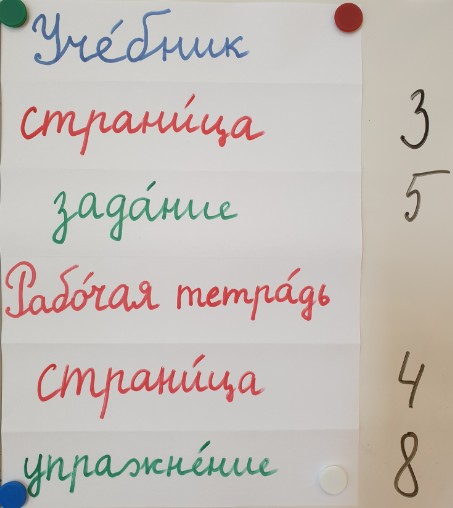 Уче́бник
страни́ца 3
зада́ние 5
Рабо́чая тетра́дь
страни́ца 4
упражне́ние 8